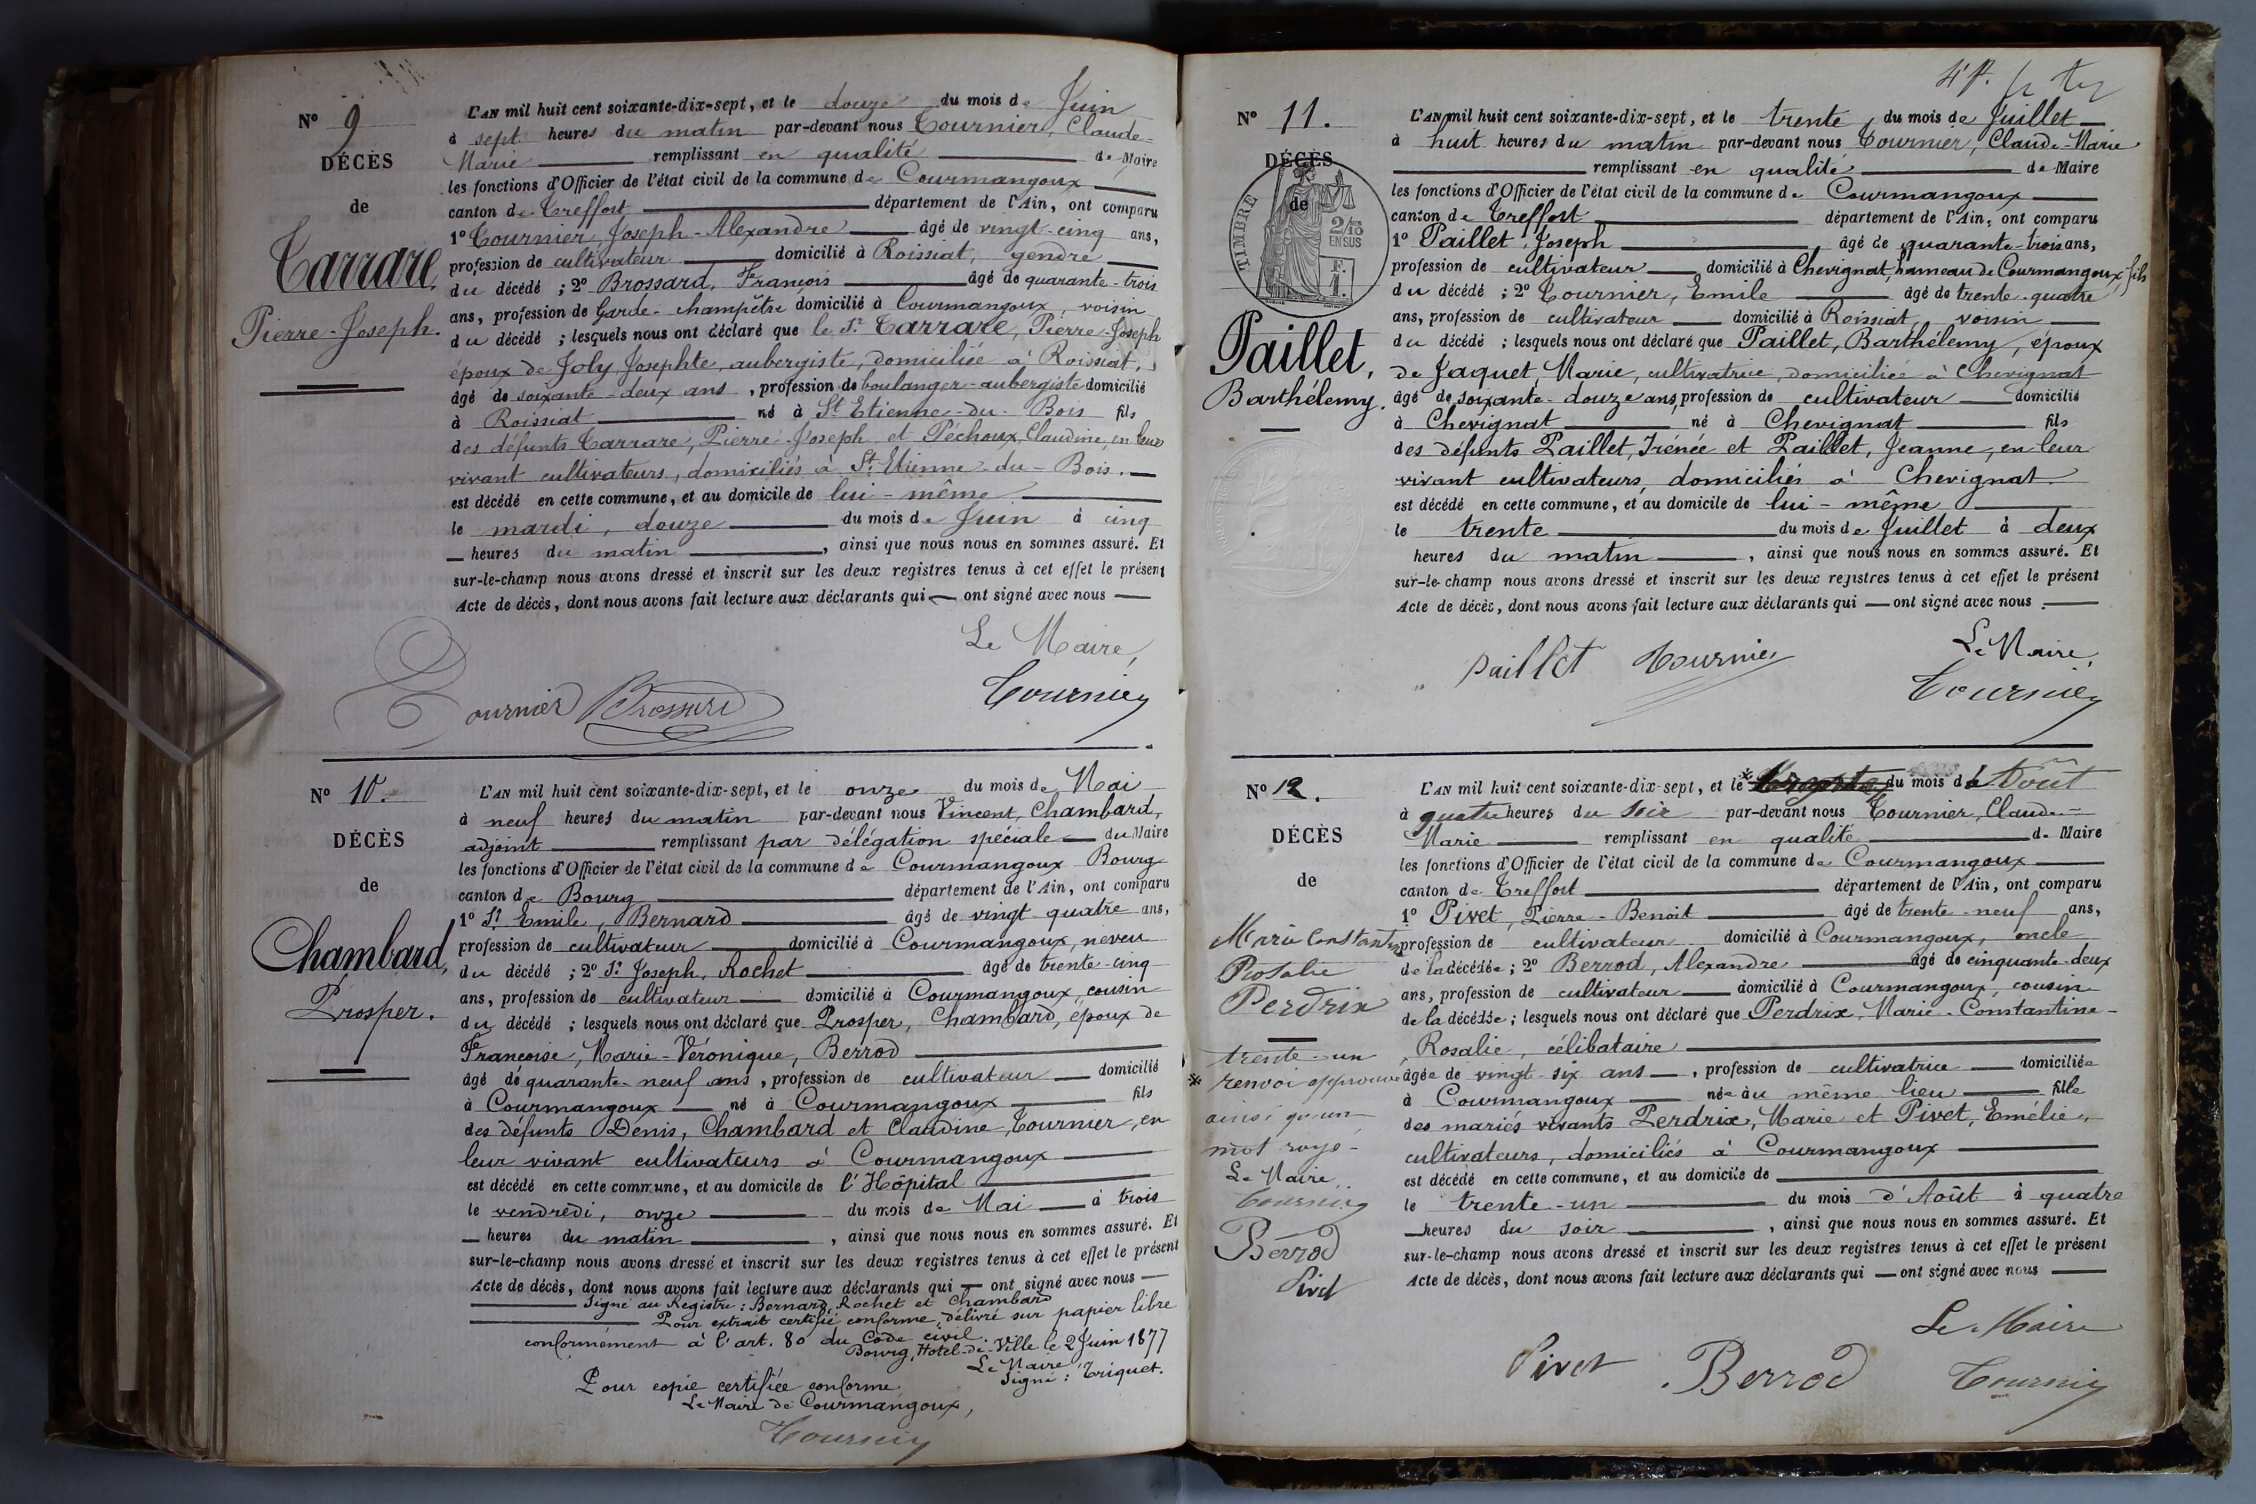 N° 9
DÉCÈS
de
Carrare,
Pierre-Joseph.
L'AN mil huit cent soixante-dix-sept, et le douze du mois de Juin
à sept heures du matin par-devant nous Tournier, Claude-
Marie remplissant en qualité de Maire
les fonctions d'Officier de l'état civil de la commune de Courmangoux
canton de Treffort département de l'Ain, ont comparu
1° Tournier, Joseph-Alexandre âgé de vingt-cinq ans,
profession de cultivateur domicilié à Roissiat, gendre
du décédé ; 2° Brossard, François âgé de quarante-trois
ans, profession de Garde-champêtre domicilié à Courmangoux, voisin
du décédé ; lesquels nous ont déclaré que le Sr Carrare, Pierre-Joseph
époux de Joly Josephte, aubergiste, domiciliée à Roissiat,
âgé de soixante-deux ans, profession de boulanger-aubergiste domicilié
à Roissiat né à St Etienne-du-Bois fils
des défunts Carrare, Pierre-Joseph et Péchoux, Claudine, en leur
vivant cultivateurs, domiciliés à St Etienne-du-Bois.
est décédé en cette commune, et au domicile de lui-même
le mardi, douze du mois de Juin à cinq
heures du matin, ainsi que nous nous en sommes assuré. Et
sur-le-champ nous avons dressé et inscrit sur les deux registres tenus à cet effet le présent
Acte de décès, dont nous avons fait lecture aux déclarants qui ont signé avec nous
Le Maire,
Tournier Brossard Tournier
N° 10.
DÉCÈS
de
Chambard,
Prosper.
L'AN mil huit cent soixante-dix-sept, et le onze du mois de Mai
à neuf heures du matin par-devant nous Vincent, Chambard,
adjoint remplissant par délégation spéciale du Maire
les fonctions d'Officier de l'état civil de la commune de Courmangoux Bourg
canton de Bourg département de l'Ain, ont comparu
1° Sr Emile, Bernard âgé de vingt-quatre ans,
profession de cultivateur domicilié à Courmangoux, neveu
du décédé ; 2° Sr Joseph, Rochet âgé de trente-cinq
ans, profession de cultivateur domicilié à Courmangoux, cousin
du décédé ; lesquels nous ont déclaré que Prosper, Chambard, époux de
Françoise, Marie-Véronique, Berrod
âgé de quarante-neuf ans, profession de cultivateur domicilié
à Courmangoux né à Courmangoux fils
des défunts Denis, Chambard et Claudine, Tournier, en
leur vivant cultivateurs à Courmangoux
est décédé en cette commune, et au domicile de l'Hôpital
le vendredi, onze du mois de Mai à trois
heures du matin, ainsi que nous nous en sommes assuré. Et
sur-le-champ nous avons dressé et inscrit sur les deux registres tenus à cet effet le présent
Acte de décès, dont nous avons fait lecture aux déclarants qui ont signé avec nous
Signé au Registre : Bernard, Rochet et Chambard
Pour extrait certifié conforme, délivré sur papier libre
conformément à l'art. 80 du Code civil.
Bourg, Hotel-de-Ville le 2 Juin 1877
Le Maire
Signé : Triquet.
Pour copie certifiée conforme,
Le Maire de Courmangoux,
Tournier
N° 11.
DÉCÈS
de
TIMBRE
2/10
EN SUS
F.
1.
Paillet,
Barthélemy.
L'AN mil huit cent soixante-dix-sept, et le trente du mois de Juillet
à huit heures du matin par-devant nous Tournier, Claude-Marie
remplissant en qualité de Maire
les fonctions d'Officier de l'état civil de la commune de Courmangoux
canton de Treffort département de l'Ain, ont comparu
1° Paillet, Joseph âgé de quarante-trois ans,
profession de cultivateur domicilié à Chevignat, hameau de Courmangoux, fils
du décédé ; 2° Tournier, Emile âgé de trente-quatre
ans, profession de cultivateur domicilié à Roissiat, voisin
du décédé ; lesquels nous ont déclaré que Paillet, Barthélemy, époux
de Jaquet, Marie, cultivatrice, domiciliée à Chevignat
âgé de soixante-douze ans, profession de cultivateur domicilié
à Chevignat né à Chevignat fils
des défunts Paillet, Irénée et Paillet, Jeanne, en leur
vivant cultivateurs, domiciliés à Chevignat.
est décédé en cette commune, et au domicile de lui-même
le trente du mois de Juillet à deux
heures du matin, ainsi que nous nous en sommes assuré. Et
sur-le-champ nous avons dressé et inscrit sur les deux registres tenus à cet effet le présent
Acte de décès, dont nous avons fait lecture aux déclarants qui ont signé avec nous
Le Maire,
Paillet Tournier Tournier
N° 12.
DÉCÈS
de
Marie Constantine
Rosalie
Perdrix
* trente-un
renvoi approuvé
ainsi qu'un
mot rayé
Le Maire
Tournier
Berrod
Pivet
L'AN mil huit cent soixante-dix-sept, et le * du mois d'Août
à quatre heures du soir par-devant nous Tournier, Claude-
Marie remplissant en qualité de Maire
les fonctions d'Officier de l'état civil de la commune de Courmangoux
canton de Treffort département de l'Ain, ont comparu
1° Pivet, Pierre-Benoit âgé de trente-neuf ans,
profession de cultivateur domicilié à Courmangoux, oncle
de la décédée ; 2° Berrod, Alexandre âgé de cinquante-deux
ans, profession de cultivateur domicilié à Courmangoux, cousin
de la décédée ; lesquels nous ont déclaré que Perdrix, Marie-Constantine-
Rosalie, célibataire
âgée de vingt-six ans, profession de cultivatrice domiciliée
à Courmangoux née au même lieu fille
des mariés vivants Perdrix, Marie et Pivet, Emélie,
cultivateurs, domiciliés à Courmangoux
est décédé en cette commune, et au domicile de
le trente-un du mois d'Août à quatre
heures du soir, ainsi que nous nous en sommes assuré. Et
sur-le-champ nous avons dressé et inscrit sur les deux registres tenus à cet effet le présent
Acte de décès, dont nous avons fait lecture aux déclarants qui ont signé avec nous
Le Maire
Pivet Berrod Tournier